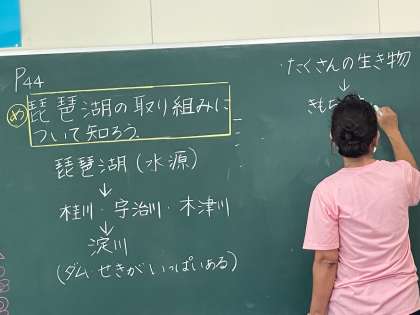 P44
め 琵琶湖の取り組みに
ついて知ろう。
琵琶湖(水源)
↓
桂川・宇治川・木津川
↓
淀川
(ダム・せきがいっぱいある)
・たくさんの生き物
↓
きも